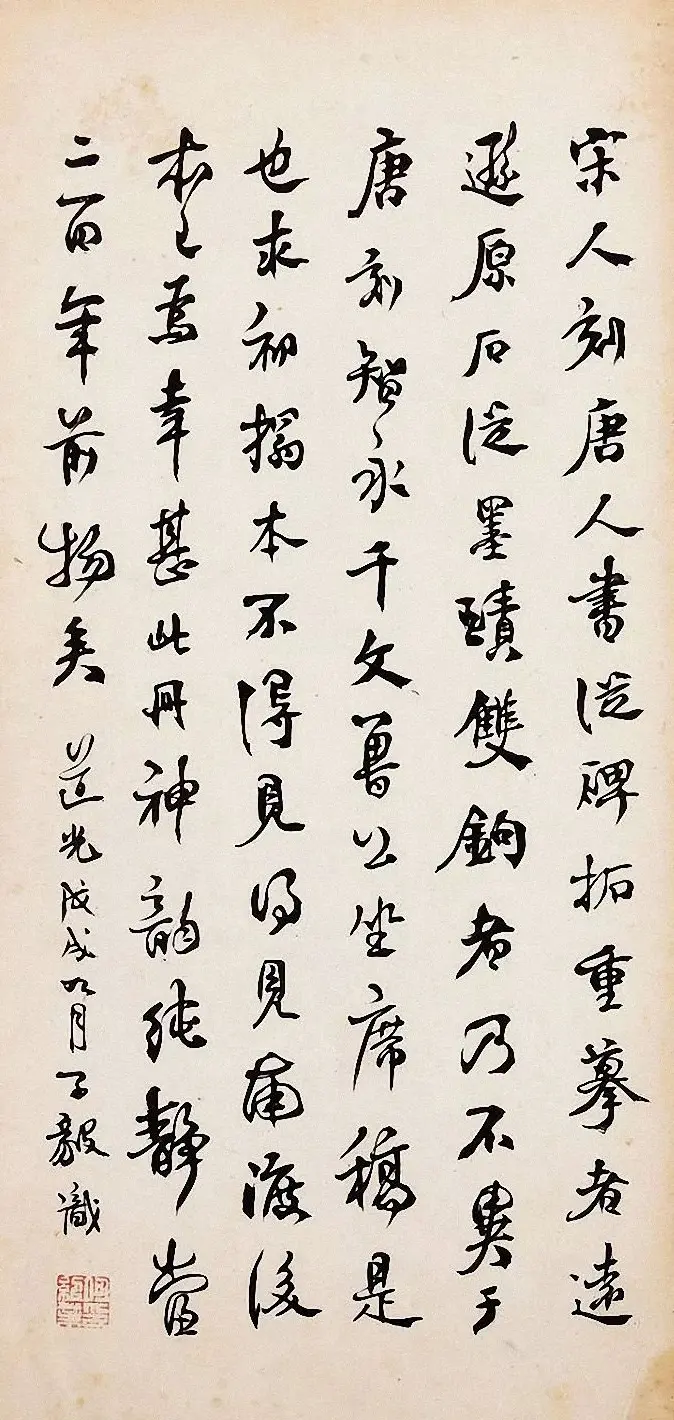 宋人刻唐人書從碑拓重摹者遠
遜原石從墨蹟雙鉤者乃不異于
唐刻智永千文魯公坐席稿是
也求初搨本不得見得見南渡後
本已為幸甚此冊神韵純靜當
二百年前物矣 道光戊戌九月子毅識